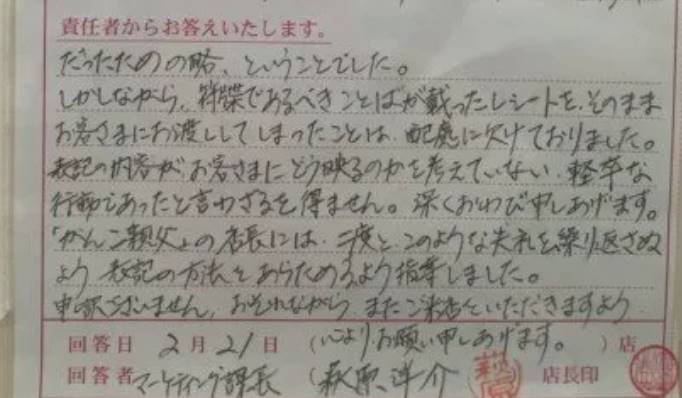 責任者からお答えいたします。
だったための略、ということでした。
しかしながら、符牒であるべきことばが載ったレシートを、そのまま
お客さまにお渡ししてしまったことは、配慮に欠けておりました。
表記の内容がお客さまにどう映るのかを考えていない、軽卒な
行動であったと言わざるを得ません。深くおわび申しあげます。
「がんこ親父」の店長には、二度とこのような失礼を繰り返さぬ
よう、表記の方法をあらためるよう指導しました。
申し訳ございません。おそれながら、またご来店をいただきますよう
回答日 2月21日 (心よりお願い申しあげます。 )店
回答者 マーケティング課長 (萩原洋介 萩原 店長印